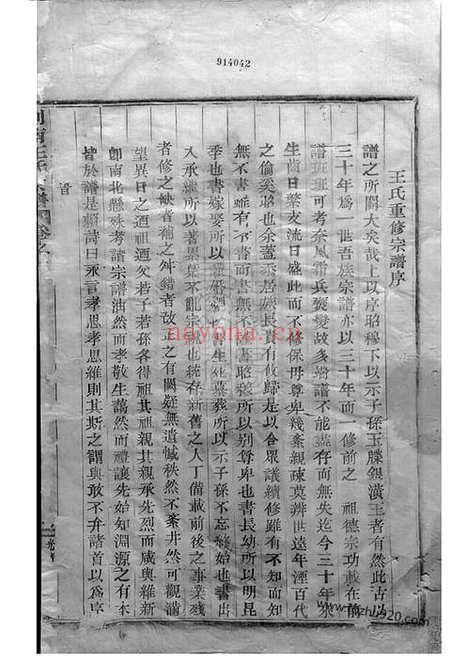 914042
王氏重修宗譜序
譜之所關大矣哉上以序昭穆下以示子孫玉牒銀潢王者有然此古
三十年為一世吾族宗譜亦以三十年而一修前之 祖德宗功載在前
譜班班可考奈風霜兵燹變故多端譜不能蓋存而無失迄今三十年來
生齒日蕃支流日盛此而不修保毋尊卑幾紊親疎莫辨世遠年湮百代
之倫奚彰也余蓋忝居族長責有攸歸是以合眾議續修雖有同
無不書雖有而書無不書昭穆所以別尊卑也書長幼所以明昆
季也書嫁娶所以謹婚姻 生死墓葬所以示子孫不忘修始也書出
繼所以著承 葉不能宗 也統存新舊之人丁備載前後之事業殘
者修之缺者補之舛錯者改正之有闕疑無遺憾秩然不紊井然可觀滿
望異日之迺祖迺父若子若孫各得祖其祖親其親承先烈而廣輿維新
卽南北懸殊考諸宗譜油然而孝敬生藹然而禮讓先始知淵源之有本
皆於譜是賴詩曰永言孝思孝思維則其斯之謂與敢不弁諸首以為序
首
nayona.cn